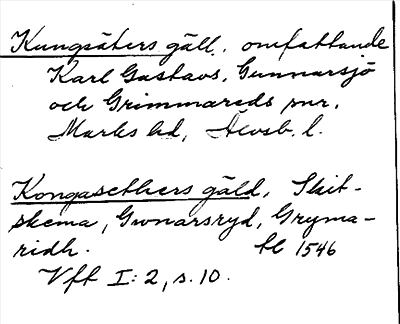 Kungsäters gäll, omfattande
Karl Gustavs, Gunnarsjö
och Grimmareds snr,
Marks hd, Älvsb. l.
Kongasethers gäld, Skit-
skema, Gwnarsryd, Gryma-
ridh. tl 1546
Vft I:2, s. 10.